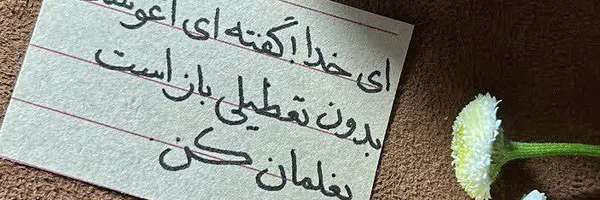 ای خدا! گفته ای
بدون تعطیلی باز است
بغلمان کن.